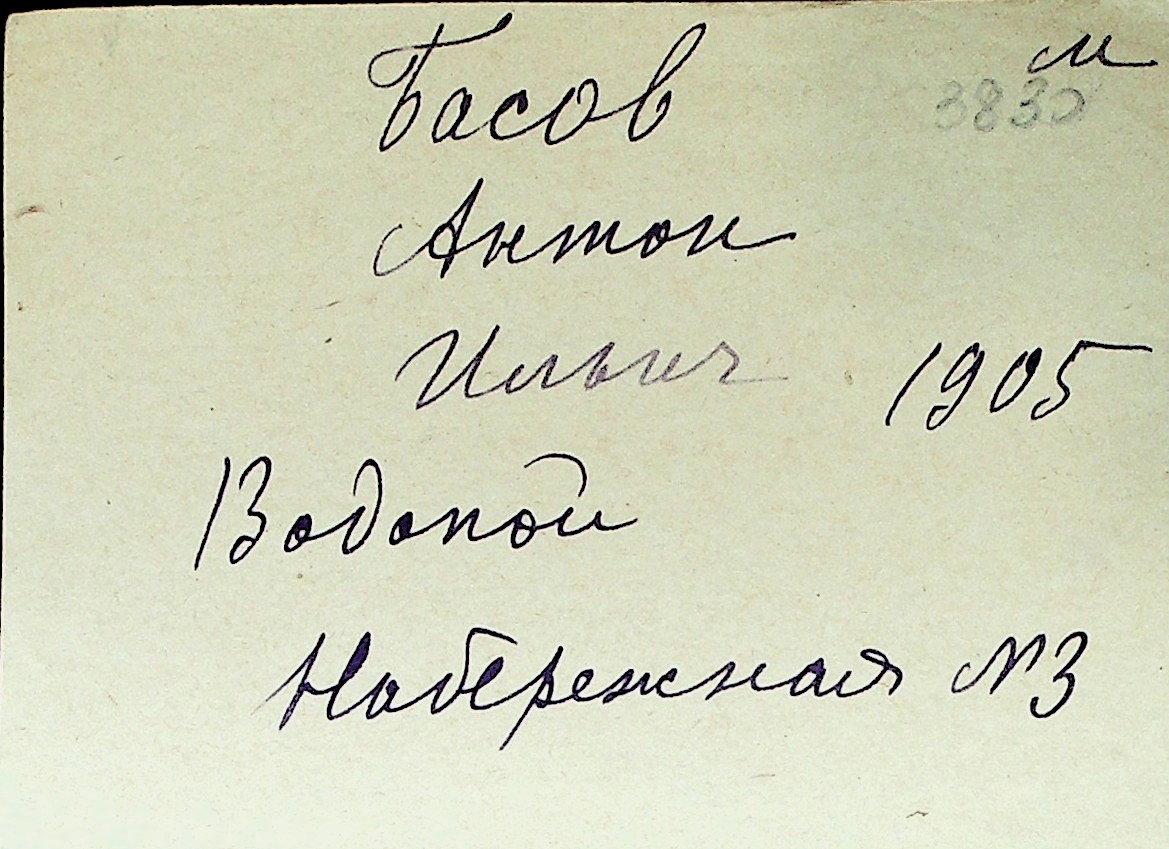 Басов м
3830
Антон
Ильич 1905
Водопой
Набережная №3